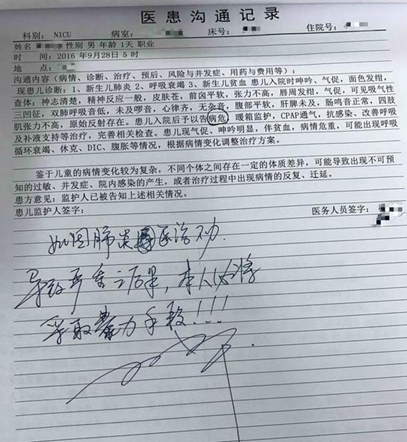 医患沟通记录
科别: NICU 病室: 床号: 住院号:
姓名 性别 男 年龄 1天 职业
时间: 2016 年9月28日 5 时
沟通内容(病情、诊断、治疗、预后、风险与并发症、用药与费用等):
现患儿诊断: 1、新生儿肺炎 2、呼吸衰竭 3、新生儿贫血 患儿入院时呻吟、气促,面色发绀,
查体: 神志清楚,精神反应一般,皮肤苍,前囟平软,张力不高,唇周发绀,气促,可见吸气性
三凹征,双肺呼吸音低,未及啰音,心律齐,无杂音,腹部平软,肝脾未及,肠鸣音正常,四肢
肌张力不高,原始反射存在。患儿入院后予以告病危,暖箱监护,CPAP通气,抗感染、改善呼吸
及补液支持等治疗,完善相关检查。患儿现气促、呻吟明显,伴贫血,病情危重,可能出现呼吸
循环衰竭、休克、DIC、腹胀等情况,根据病情变化调整治疗方案。
鉴于儿童的病情变化较为复杂,不同个体之间存在一定的体质差异,可能导致出现不可预
知的过敏、并发症、院内感染的产生,或者治疗过程中出现病情的反复、迁延。
患方意见: 监护人已被告知上述相关情况。
患儿监护人签字: 医务人员签字:
如因肺炎 治
导致严重之后果,本人必将
采取暴力手段!!!